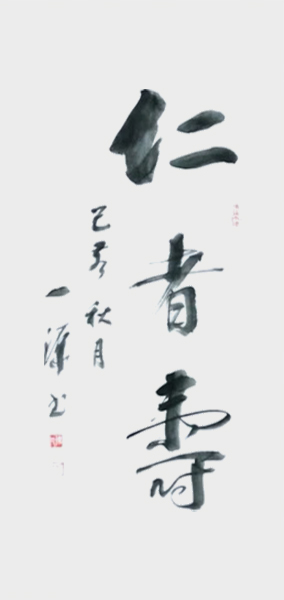 仁者壽
己亥秋月
一
书